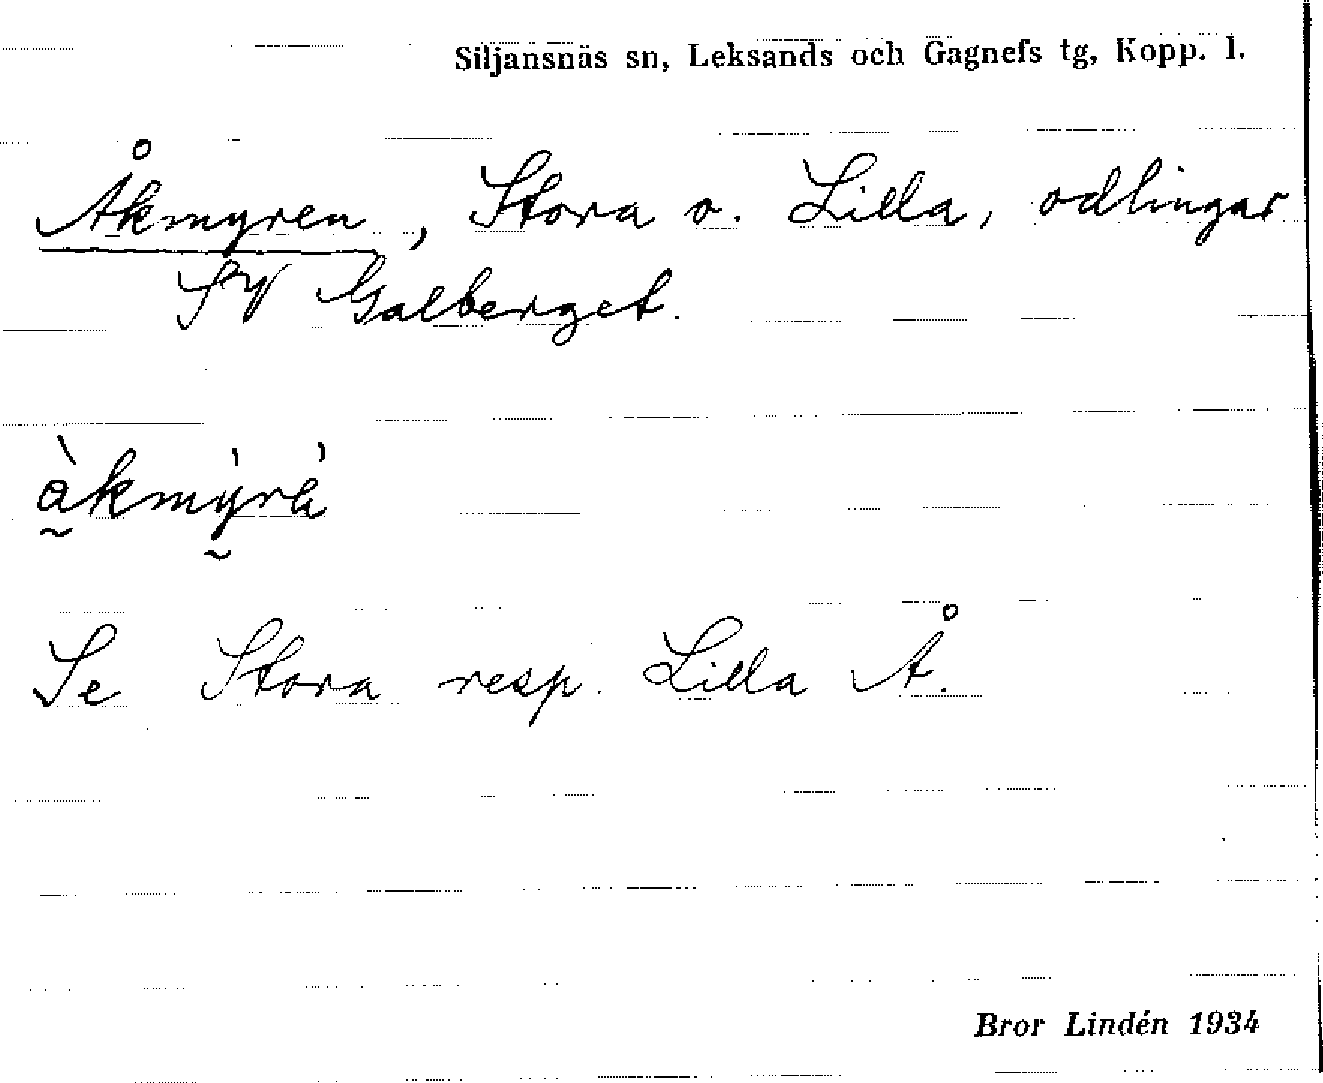 Siljansnäs sn, Leksands och Gagnefs tg, Kopp. l.
Åkmyren, Stora o. Lilla, odlingar
SV Galberget.
Se Stora resp. Lilla Å.
Bror Lindén 1934